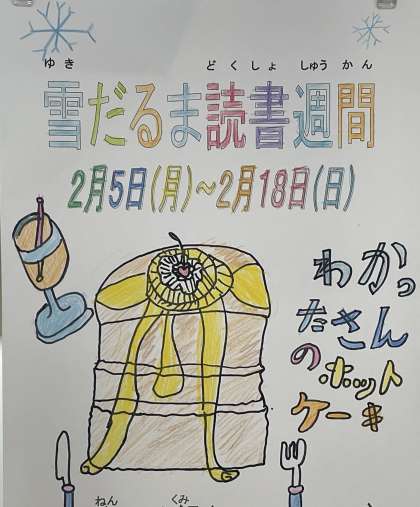 ゆき どくしょ しゅうかん
雪だるま読書週間
2月5日(月)~2月18日(日)
わかっ
たさん
の
ホット
ケーキ
ねん くみ